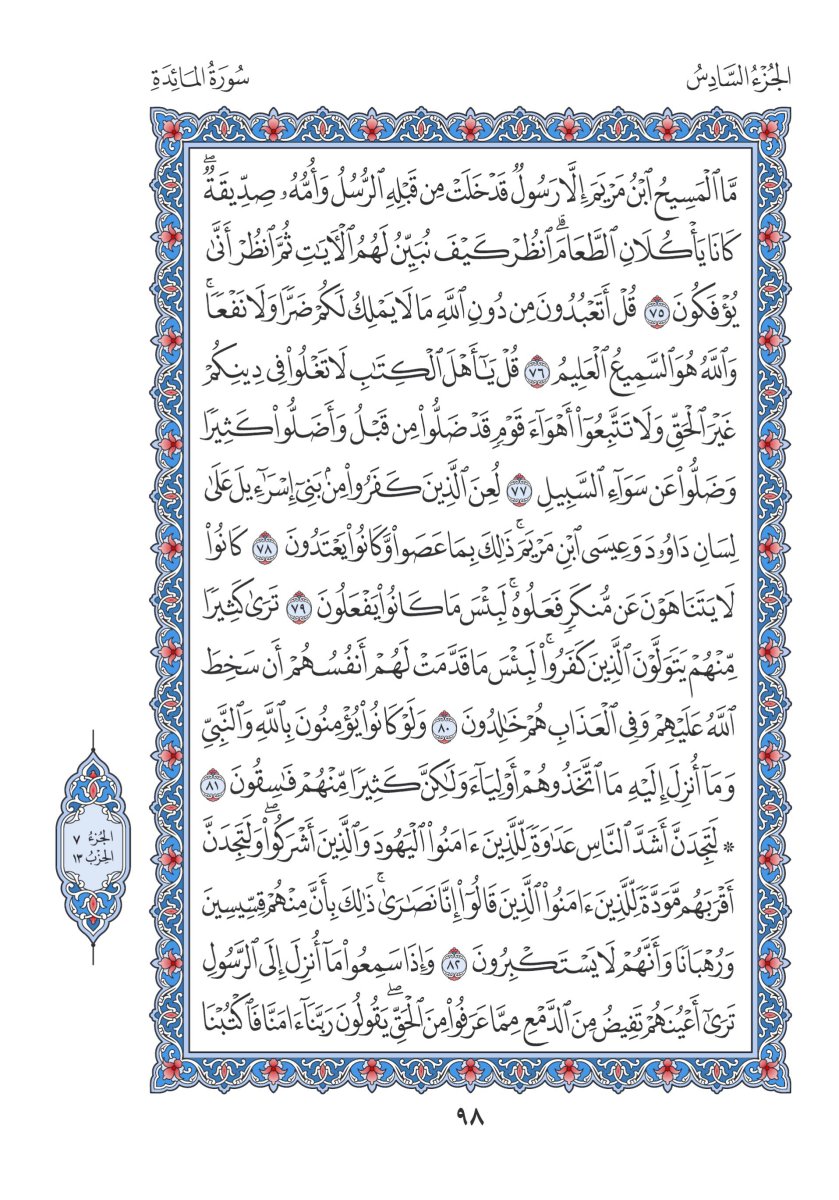 الجُزْءُ السَّادِسُ
سُورَةُ المَائِدَةِ
مَّا ٱلْمَسِيحُ ٱبْنُ مَرْيَمَ إِلَّا رَسُولٌ قَدْ خَلَتْ مِن قَبْلِهِ ٱلرُّسُلُ وَأُمُّهُۥ صِدِّيقَةٌۖ
كَانَا يَأْكُلَانِ ٱلطَّعَامَۗ ٱنظُرْ كَيْفَ نُبَيِّنُ لَهُمُ ٱلْأٓيَٰتِ ثُمَّ ٱنظُرْ أَنَّىٰ
يُؤْفَكُونَ ٧٥ قُلْ أَتَعْبُدُونَ مِن دُونِ ٱللَّهِ مَا لَا يَمْلِكُ لَكُمْ ضَرًّا وَلَا نَفْعًاۚ
وَٱللَّهُ هُوَ ٱلسَّمِيعُ ٱلْعَلِيمُ ٧٦ قُلْ يَٰٓأَهْلَ ٱلْكِتَٰبِ لَا تَغْلُوا۟ فِى دِينِكُمْ
غَيْرَ ٱلْحَقِّ وَلَا تَتَّبِعُوٓا۟ أَهْوَآءَ قَوْمٍ قَدْ ضَلُّوا۟ مِن قَبْلُ وَأَضَلُّوا۟ كَثِيرًا
وَضَلُّوا۟ عَن سَوَآءِ ٱلسَّبِيلِ ٧٧ لُعِنَ ٱلَّذِينَ كَفَرُوا۟ مِنۢ بَنِىٓ إِسْرَٰٓءِيلَ عَلَىٰ
لِسَانِ دَاوُۥدَ وَعِيسَى ٱبْنِ مَرْيَمَۚ ذَٰلِكَ بِمَا عَصَوا۟ وَّكَانُوا۟ يَعْتَدُونَ ٧٨ كَانُوا۟
لَا يَتَنَاهَوْنَ عَن مُّنكَرٍ فَعَلُوهُۚ لَبِئْسَ مَا كَانُوا۟ يَفْعَلُونَ ٧٩ تَرَىٰ كَثِيرًا
مِّنْهُمْ يَتَوَلَّوْنَ ٱلَّذِينَ كَفَرُوا۟ۚ لَبِئْسَ مَا قَدَّمَتْ لَهُمْ أَنفُسُهُمْ أَن سَخِطَ
ٱللَّهُ عَلَيْهِمْ وَفِى ٱلْعَذَابِ هُمْ خَٰلِدُونَ ٨٠ وَلَوْ كَانُوا۟ يُؤْمِنُونَ بِٱللَّهِ وَٱلنَّبِىِّ
وَمَآ أُنزِلَ إِلَيْهِ مَا ٱتَّخَذُوهُمْ أَوْلِيَآءَ وَلَٰكِنَّ كَثِيرًا مِّنْهُمْ فَٰسِقُونَ ٨١
۞ لَتَجِدَنَّ أَشَدَّ ٱلنَّاسِ عَدَٰوَةً لِّلَّذِينَ ءَامَنُوا۟ ٱلْيَهُودَ وَٱلَّذِينَ أَشْرَكُوا۟ۖ وَلَتَجِدَنَّ
أَقْرَبَهُم مَّوَدَّةً لِّلَّذِينَ ءَامَنُوا۟ ٱلَّذِينَ قَالُوٓا۟ إِنَّا نَصَٰرَىٰۚ ذَٰلِكَ بِأَنَّ مِنْهُمْ قِسِّيسِينَ
وَرُهْبَانًا وَأَنَّهُمْ لَا يَسْتَكْبِرُونَ ٨٢ وَإِذَا سَمِعُوا۟ مَآ أُنزِلَ إِلَى ٱلرَّسُولِ
تَرَىٰٓ أَعْيُنَهُمْ تَفِيضُ مِنَ ٱلدَّمْعِ مِمَّا عَرَفُوا۟ مِنَ ٱلْحَقِّۖ يَقُولُونَ رَبَّنَآ ءَامَنَّا فَٱكْتُبْنَا
الجُزْءُ ٧
الحِزْبُ ١٣
٩٨